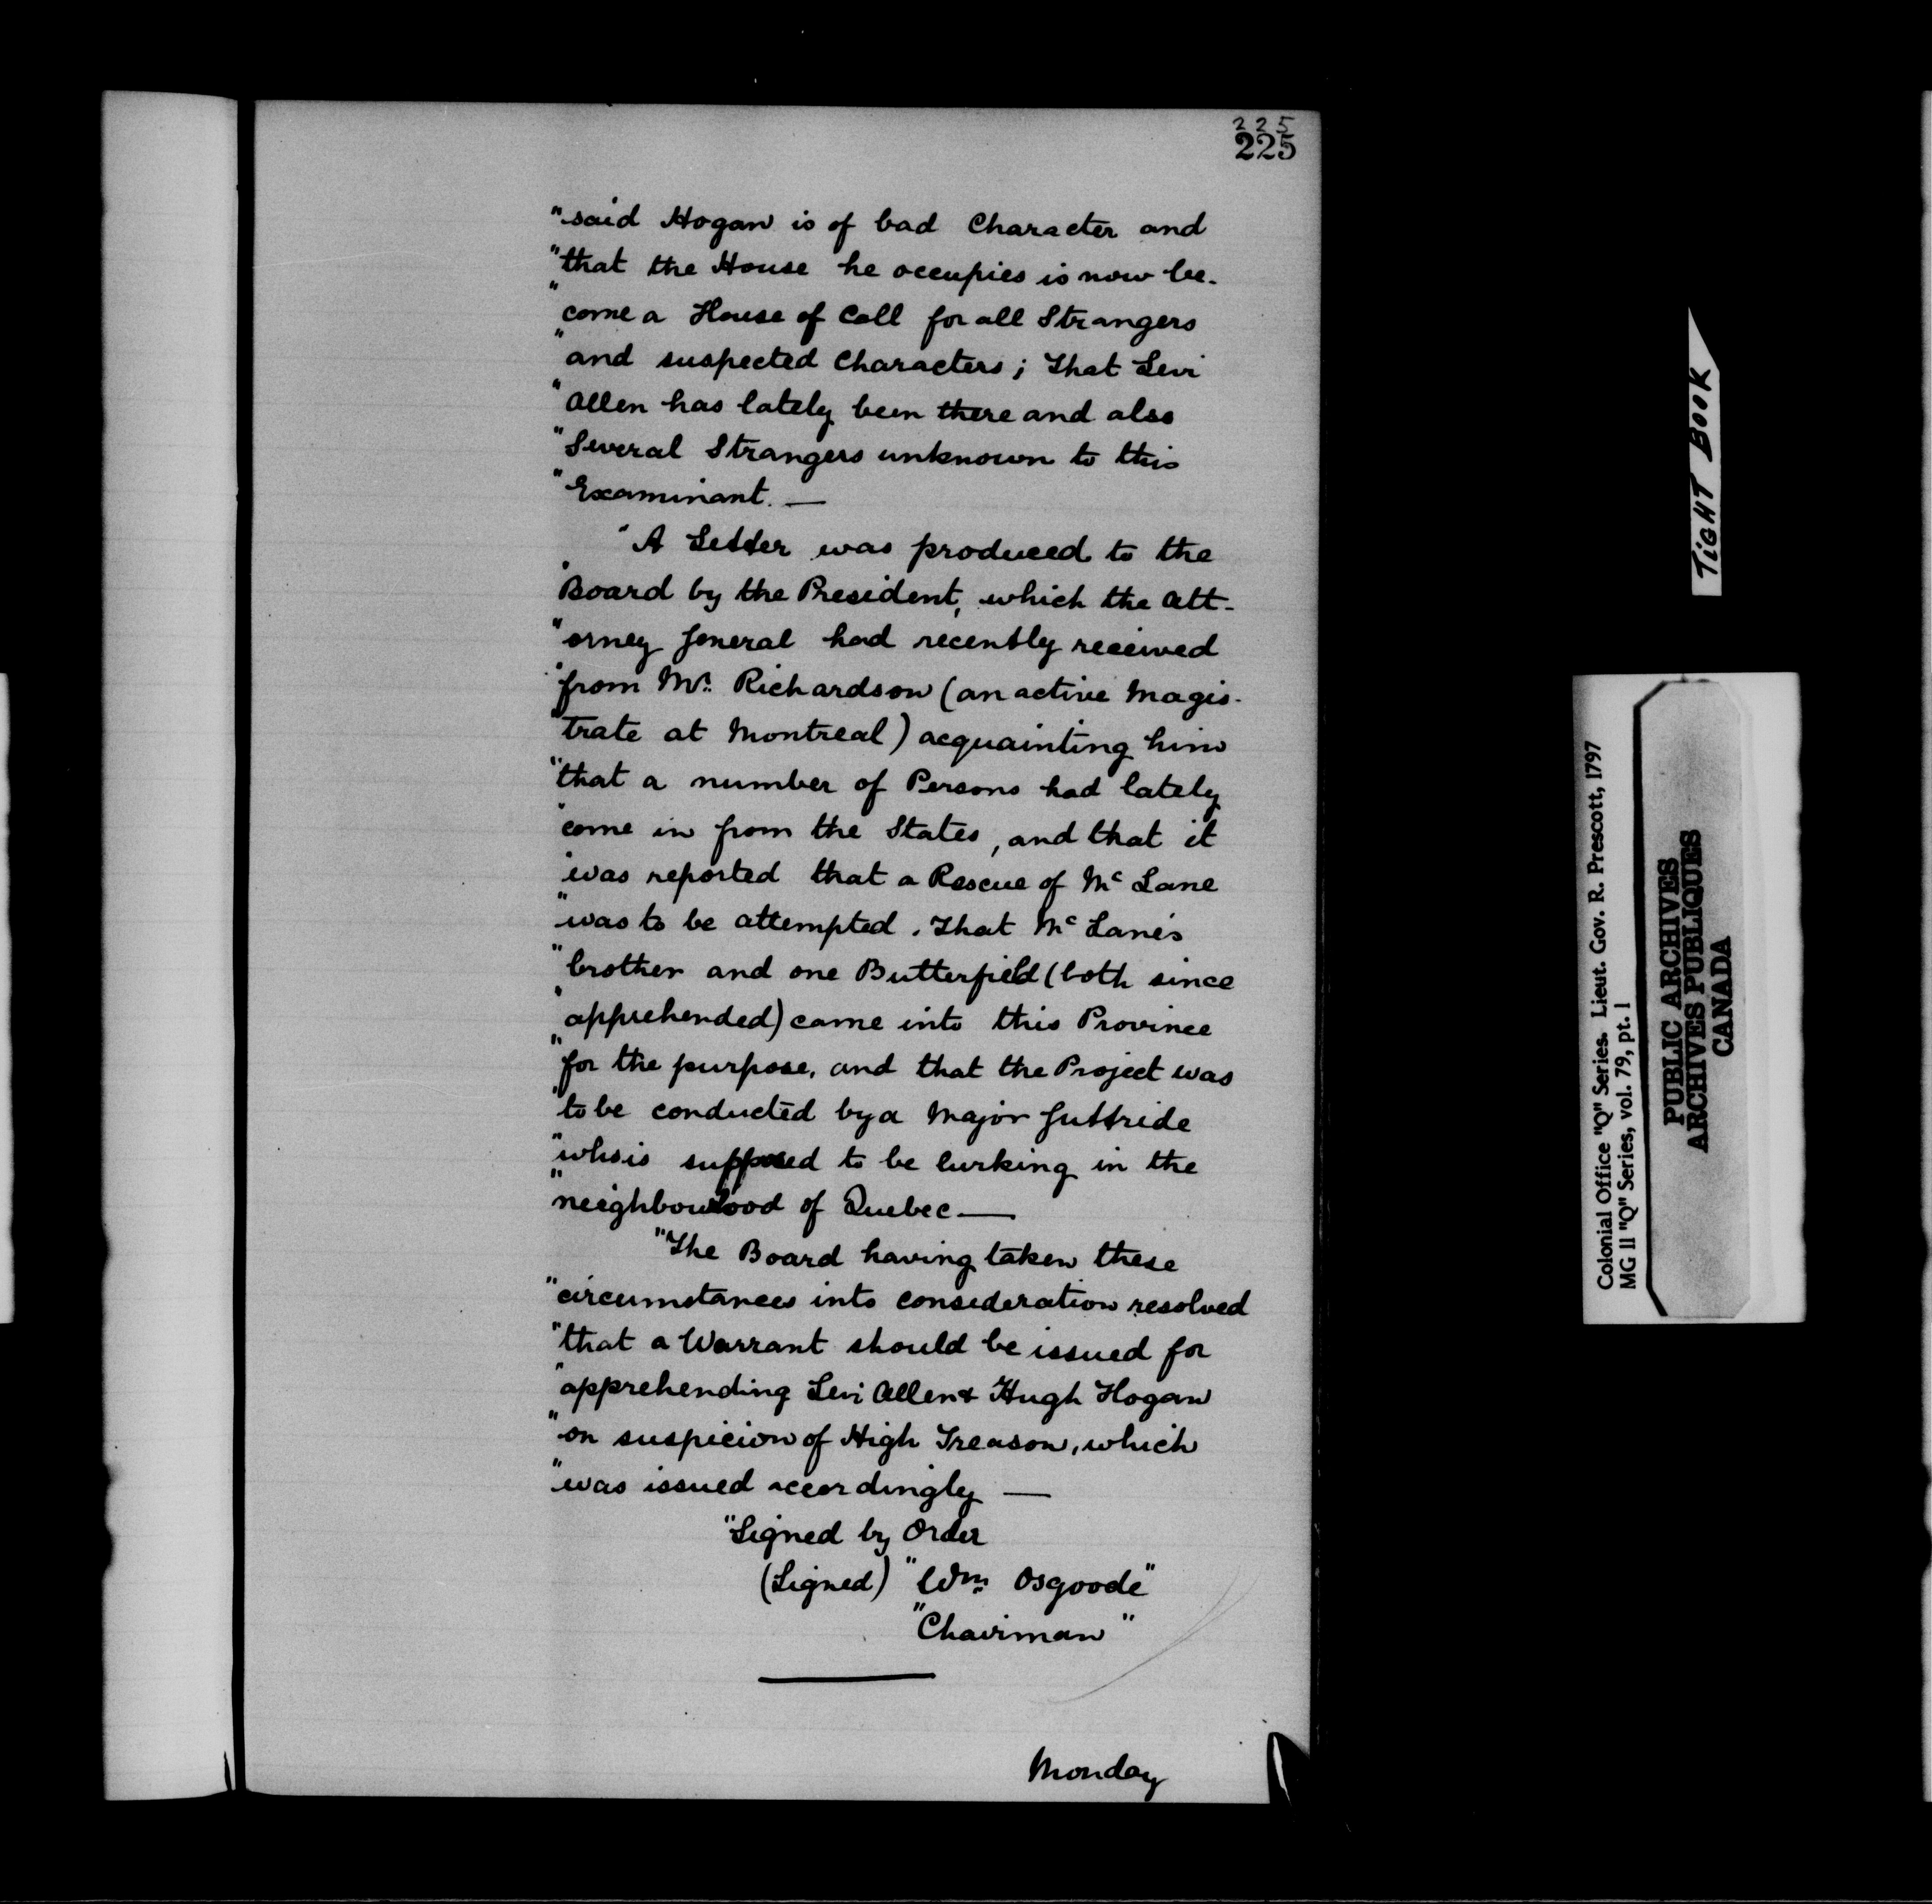 225
225
"said Hogan is of bad Character and
"that the House he occupies is now be-
"come a House of Call for all Strangers
"and suspected Characters; That Levi
"Allen has lately been there and also
"Several Strangers unknown to this
"Examinant. —
"A Letter was produced to the
"Board by the President, which the Att-
"orney General had recently received
"from Mr. Richardson (an active Magis-
"trate at Montreal) acquainting him
"that a number of Persons had lately
"come in from the States, and that it
"was reported that a Rescue of Mc Lane
"was to be attempted. That Mc Lane's
"brother and one Butterfield (both since
"apprehended) came into this Province
"for the purpose, and that the Project was
"to be conducted by a Major Guttride
"who is supposed to be lurking in the
"neighbourhood of Quebec —
"The Board having taken these
"circumstances into consideration resolved
"that a Warrant should be issued for
"apprehending Levi Allen & Hugh Hogan
"on suspicion of High Treason, which
"was issued accordingly —
"Signed by Order
(Signed) "Wm. Osgoode"
"Chairman"
Monday
TIGHT BOOK
Colonial Office "Q" Series. Lieut. Gov. R. Prescott, 1797
MG 11 "Q" Series, vol. 79, pt. 1
PUBLIC ARCHIVES
ARCHIVES PUBLIQUES
CANADA